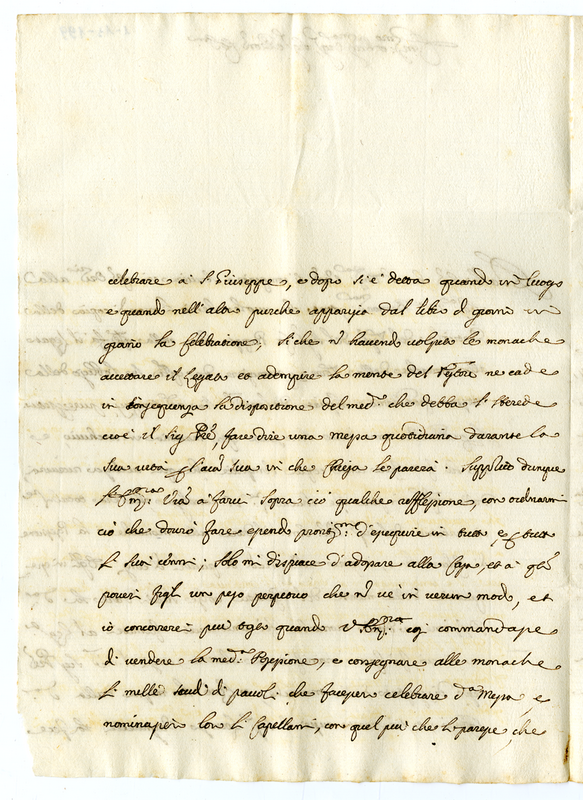 celebrare a S. Giuseppe, e dopo si è detta quando in un luogo
e quando nell'altro purche apparisca dal libro di giorno in
giorno la celebratione; si che nõ havendo voluto le monache
accettare il legato et adempire la mente del Testore ne cade
in conseguenza la dispositione del med.º che debba l'herede
cioè il Sig. Pre, far dire una messa quotidiana durante la
sua vita in che Chiesa le parerà. Supplico dunque
V. Em.za a farci sopra ciò qualche reflessione, con ordinarmi
ciò che dovrò fare essendo d'eseguire in tutto e per tutto
li suoi cenni; solo mi dispiace d'adossare alla Casa, et a
poveri figli un peso perpetuo che nõ vè in verun modo, et
io concorrerei più tosto quando V. Em.za commandasse
di vendere la med.ª Possessione, e consegnare alle monache
li mille scudi di pavoli che facessero celebrare d.ª Messa, e
nominassero loro li Capellani, con quel più che le paresse, che